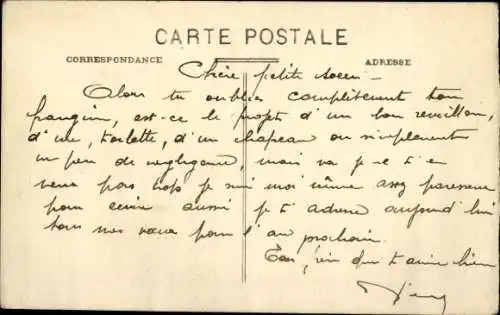 CARTE POSTALE
CORRESPONDANCE
ADRESSE
Chère petite soeur –
Alors tu oublies complètement ton
frangin, est-ce le projet d'un bon réveillon,
d'une toilette, d'un chapeau ou simplement
un peu de négligence, mais va je ne t'en
veux pas trop je suis moi même assez paresseux
pour écrire aussi je t'adresse aujourd'hui
tous mes voeux pour l'an prochain.
qui t'aime bien